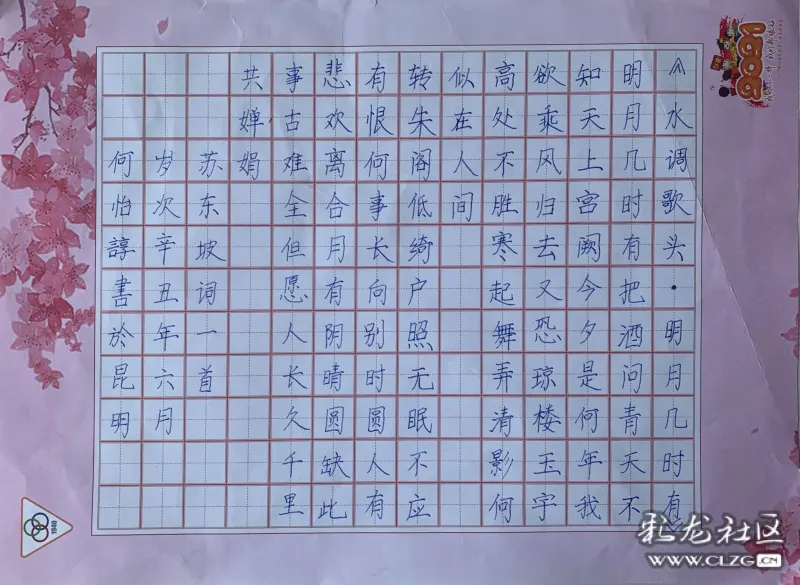 《水调歌头·明月几时有》
明月几时有把酒问青天不
知天上宫阙今夕是何年我
欲乘风归去又恐琼楼玉宇
高处不胜寒起舞弄清影何
似在人间
转朱阁低绮户照无眠不应
有恨何事长向别时圆人有
悲欢离合月有阴晴圆缺此
事古难全但愿人长久千里
共婵娟
苏东坡词一首
岁次辛丑年六月
何怡諄書於昆明
彩龙社区
WWW.CLZG.CN